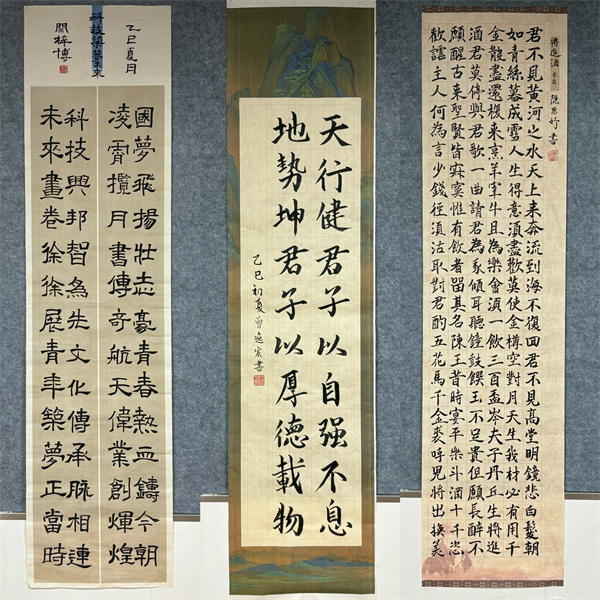 乙巳夏月
科技築夢未來
閻梓博
國夢飛揚壯志豪青春熱血鑄今朝
凌霄攬月書傳奇航天偉業創輝煌
科技興邦智為先文化傳承脈相連
未來畫卷徐徐展青年築夢正當時
天行健君子以自强不息
地勢坤君子以厚德載物
乙巳初夏曾逸宸書
將進酒 李白 陳思妤書
君不見黃河之水天上来奔流到海不復回君不見高堂明鏡悲白髮朝
如青絲暮成雪人生得意湏盡歡莫使金樽空對月天生我材必有用千
金散盡還復来烹羊宰牛且為樂會湏一飲三百盃岑夫子丹丘生將進
酒君莫停與君歌一曲請君為我傾耳聽鐘鼓饌玉不足貴但願長醉不
願醒古来聖賢皆寂寞惟有飲者留其名陳王昔時宴平樂斗酒十千恣
歡謔主人何為言少錢徑湏沽取對君酌五花馬千金裘呼兒將出換美